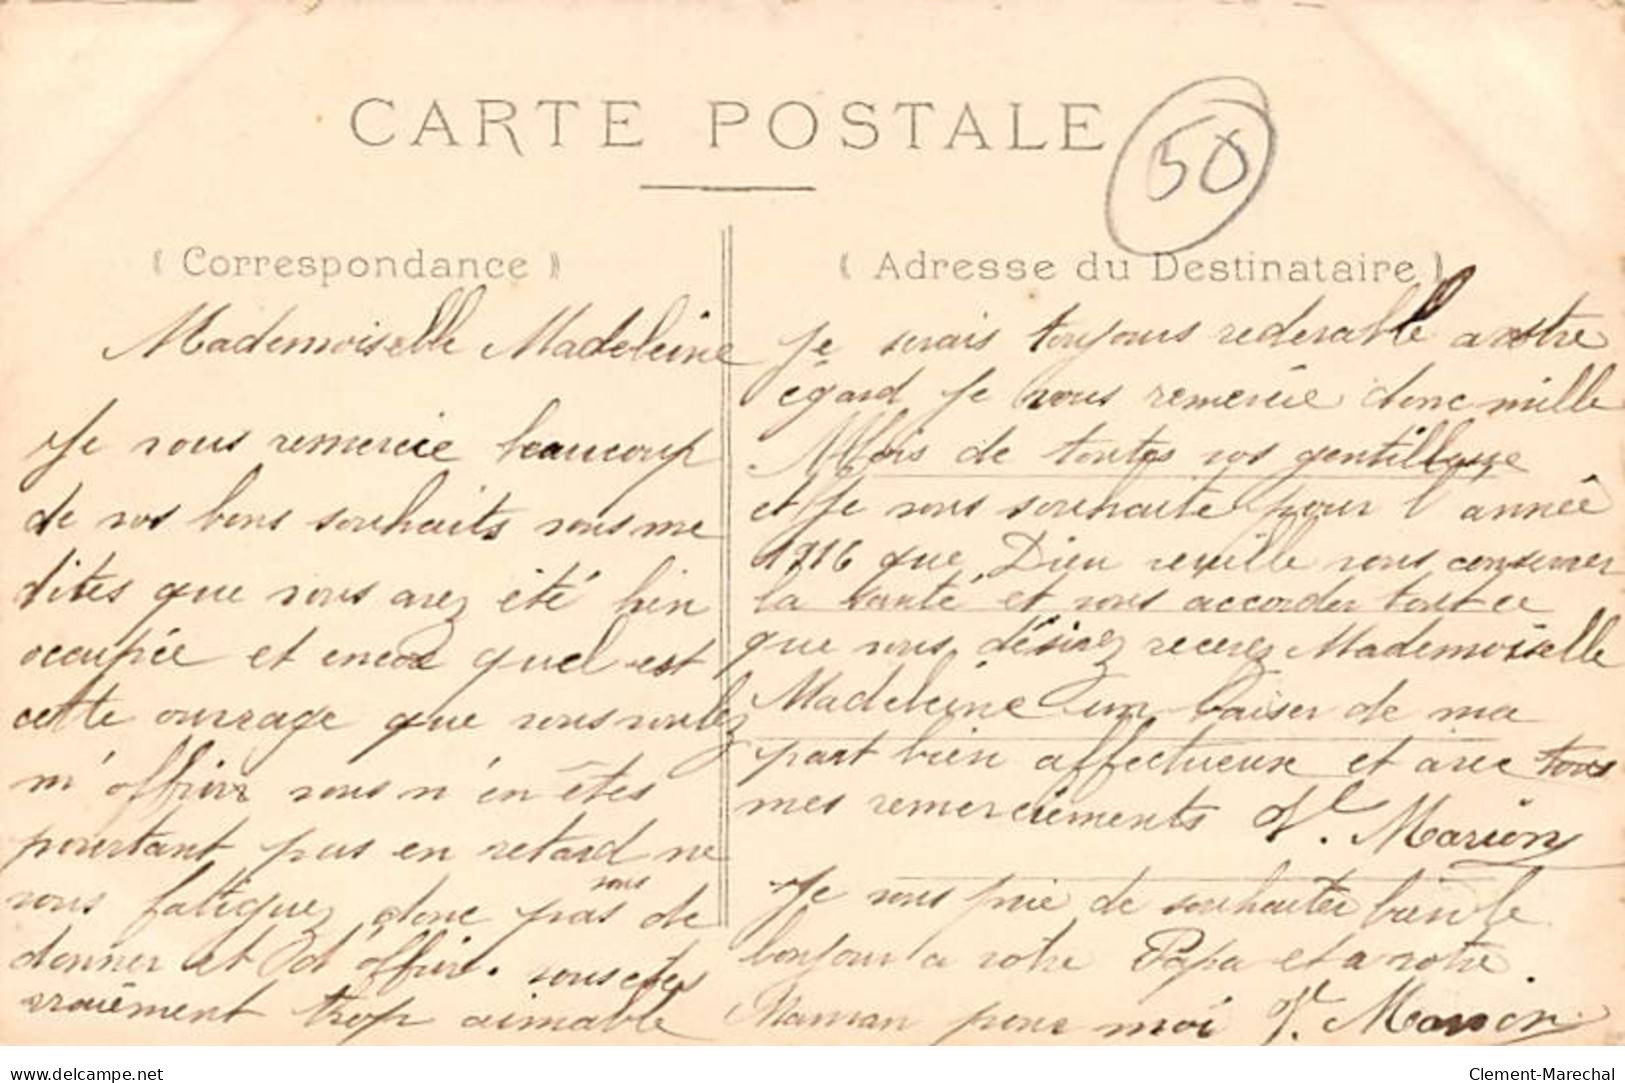 CARTE POSTALE
50
( Correspondance )
Mademoiselle Madeleine
Je vous remercie beaucoup
de vos bons souhaits vous me
dites que vous avez été bien
occupée et encore quel est
cette ouvrage que vous voulez
m'offrir vous n'en êtes
pourtant pas en retard ne
vous fatiguez donc pas vous de
donner et d'offrir. vous etes
vraiement trop aimable
( Adresse du Destinataire )
je serais toujours rederable a votre
égard je vous remercie donc mille
fois de toutes vos gentillesse
et je vous souhaite pour l'année
1916 que Dieu veuille vous conserver
la santé et vous accorder tout ce
que vous désirez recevez Mademoiselle
Madeleine un baiser de ma
part bien affectueux et avec tous
mes remerciements V. Marion
Je vous prie de souhaiter bien le
bonjour a votre Papa et a votre
Maman pour moi V. Marion
delcampe.net
Clement-Marechal